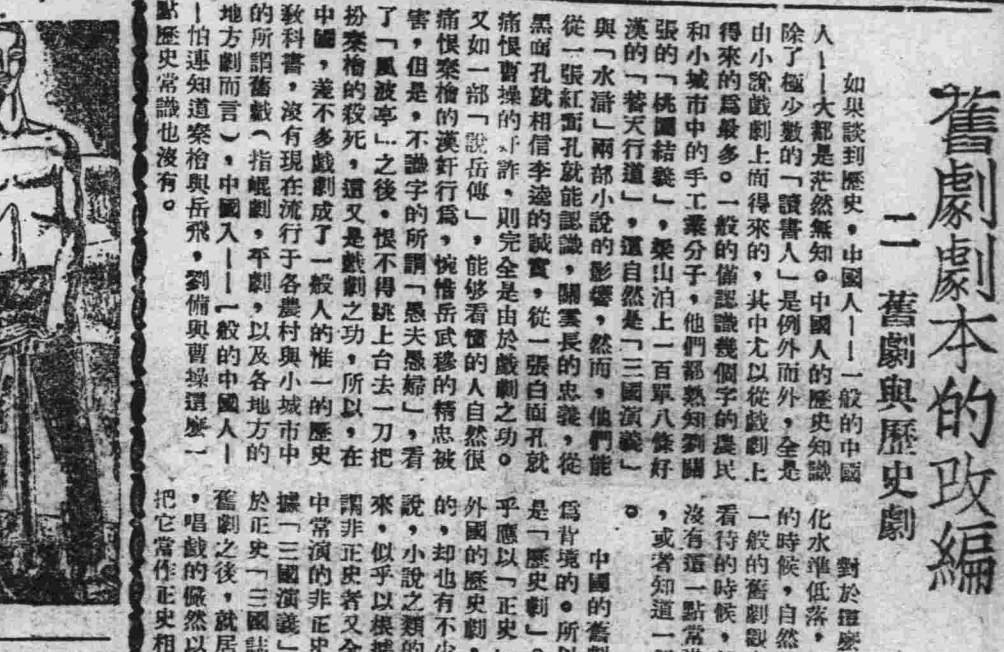 舊劇劇本的改編
二 舊劇與歷史劇
如果談到歷史，中國人——一般的中國
人——大都是茫然無知。中國人的歷史知識
除了極少數的「讀書人」是例外而外，全是
由小說戲劇上面得來的，其中尤以從戲劇上
得來的爲最多。一般的僅認識幾個字的農民
和小城市中的手工業分子，他們都熟知劉關
張的「桃園結義」，梁山泊上一百單八條好
漢的「替天行道」，這自然是「三國演義」
與「水滸」兩部小說的影響，然而，他們能
從一張紅面孔就能認識，關雲長的忠義，從
黑面孔就相信李逵的誠實，從一張白面孔就
痛恨曹操的奸詐，則完全是由於戲劇之功。
又如一部「說岳傳」，能够看懂的人自然很
痛恨秦檜的漢奸行爲，惋惜岳武穆的精忠被
害，但是，不識字的所謂「愚夫愚婦」，看
了「風波亭」之後，恨不得跳上台去一刀把
扮秦檜的殺死，這又是戲劇之功，所以，在
中國，差不多戲劇成了一般人的惟一的歷史
敎科書，沒有現在流行于各農村與小城市中
的所謂舊戲（指崐劇，平劇，以及各地方的
地方劇而言），中國人——一般的中國人—
—怕連知道秦檜與岳飛，劉備與曹操這麽一
點歷史常識也沒有。
對於這麽
化水準低落，
的時候，自然
一般的舊劇觀
看待的時候，
沒有這一點常
，或者知道一
。
中國的舊劇
爲背境的。所以
是「歷史劇」。
乎應以「正史」
外國的歷史劇，
的，却也有不少
說，小說之類的
來，似乎以根據
謂非正史者又全
中常演的非正史
據「三國演義」
於正史「三國誌
舊劇之後，就居
，唱戲的儼然以
把它當作正史相